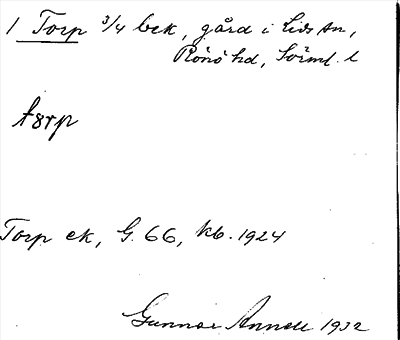 1 Torp 3/4 bek, gård i Lids sn,
Rönö hd, Sörml. l
tɑrp
Torp ek, G. 66, kb. 1924
Gunnar Annell 1932